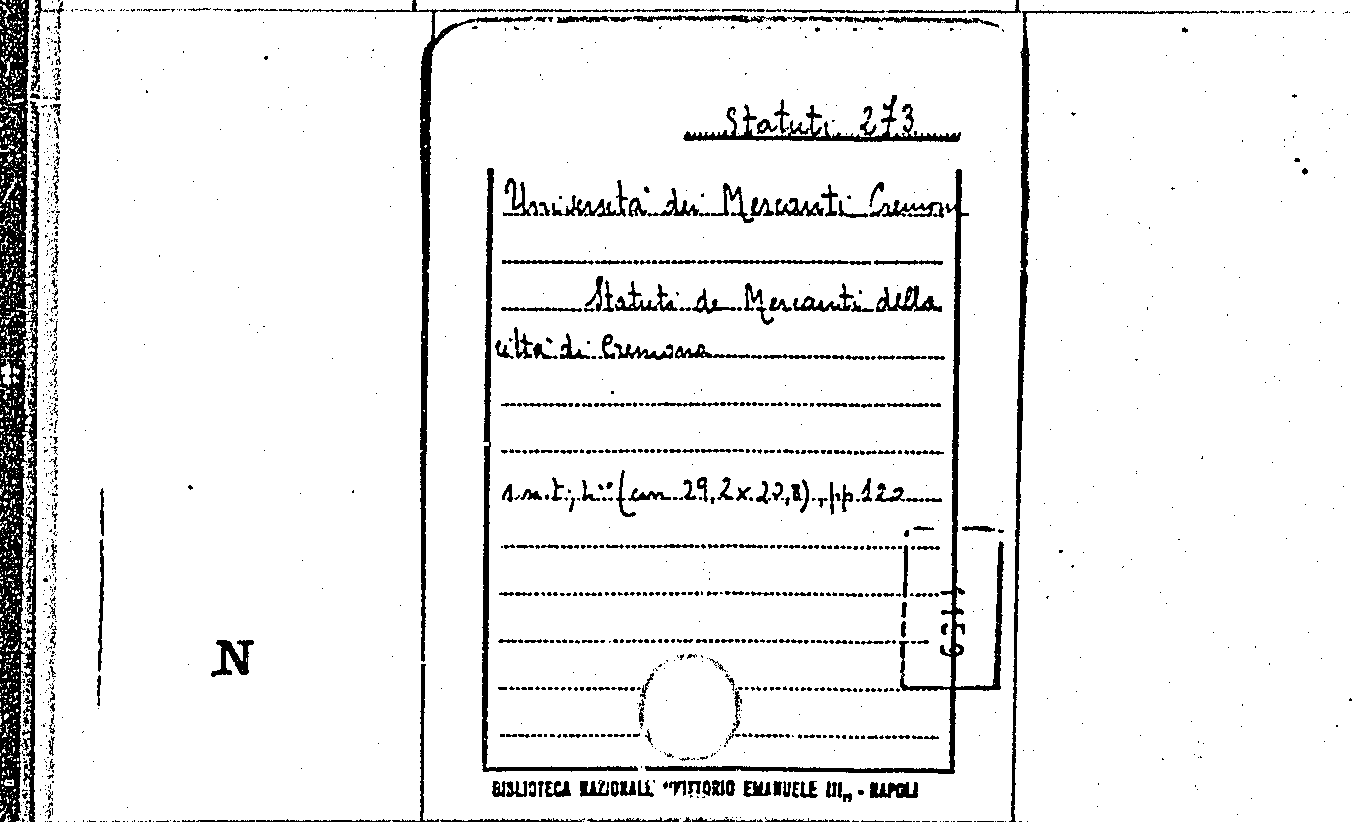 Statuti 273
Università dei Mercanti Cremon
Statuti de Mercanti della
città di Cremona
s.n.t; (cm 29,2x20,8), pp 122
N
BIBLIOTECA NAZIONALE "VITTORIO EMANUELE III„ - NAPOLI